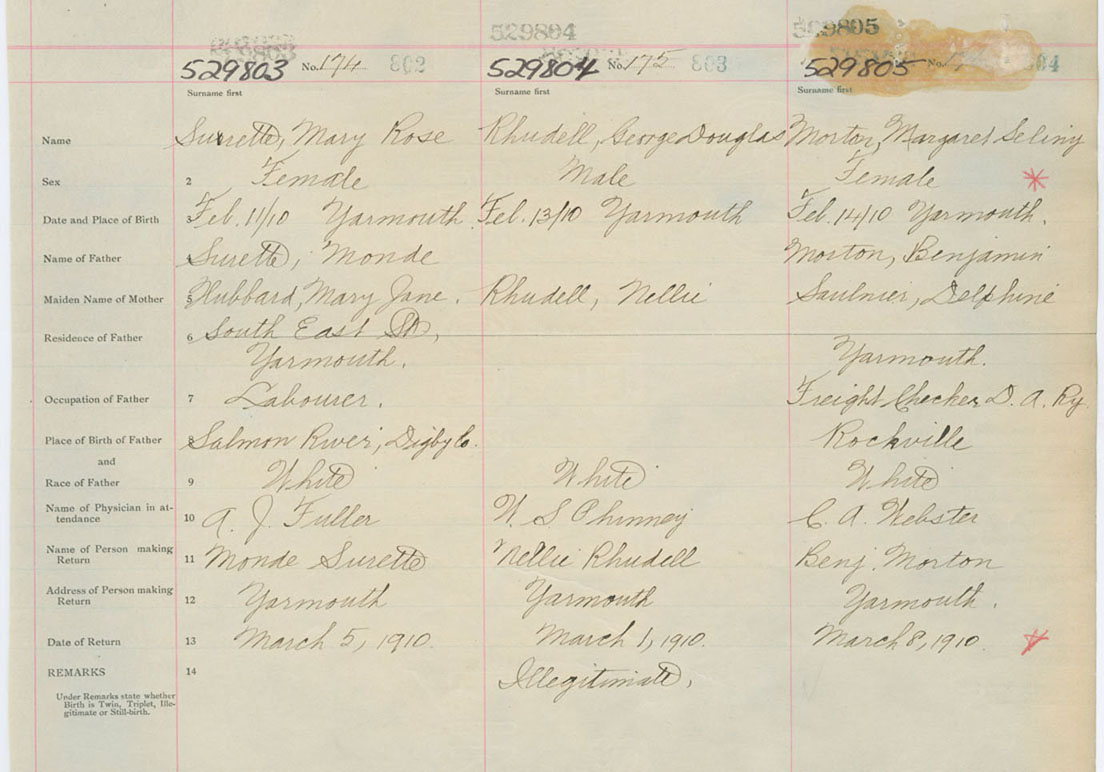 529804 529805
529803 No. 174 802 529804 No. 175 803 529805 No.
Surname first Surname first Surname first
Name Surrette, Mary Rose Rhudell, George Douglas Morton, Margaret Seliny
Sex 2 Female Male Female
Date and Place of Birth 3 Feb. 11/10 Yarmouth. Feb. 13/10 Yarmouth Feb. 14/10 Yarmouth.
Name of Father 4 Surette, Monde Morton, Benjamin
Maiden Name of Mother 5 Hubbard, Mary Jane. Rhudell, Nellie Saulnier, Delphine
Residence of Father 6 South East St,
Yarmouth. Yarmouth.
Occupation of Father 7 Labourer. Freight Checker D. A. Ry
Place of Birth of Father 8 Salmon River, Digby Co. Rockville
and
Race of Father 9 White White White
Name of Physician in at-
tendance 10 A. J. Fuller W. S Phinney C. A. Webster
Name of Person making
Return 11 Monde Surette Nellie Rhudell Benj. Morton
Address of Person making
Return 12 Yarmouth Yarmouth Yarmouth.
Date of Return 13 March 5, 1910. March 1, 1910. March 8, 1910.
REMARKS 14 Illegitimate,
Under Remarks state whether
Birth is Twin, Triplet, Ille-
gitimate or Still-birth.